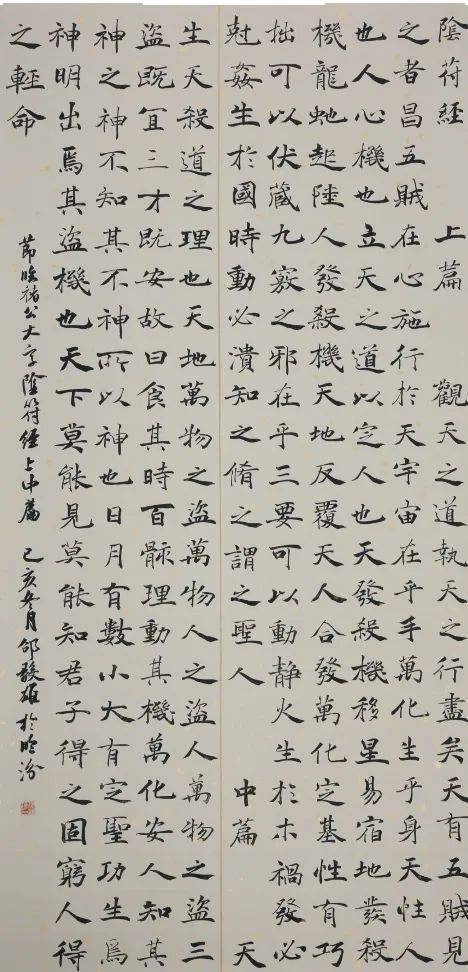 陰符經 上篇 觀天之道執天之行盡矣天有五賊見
之者昌五賊在心施行於天宇宙在乎手萬化生乎身天性人
也人心機也立天之道以定人也天發殺機移星易宿地發殺
機龍虵起陸人發殺機天地反覆天人合發萬化定基性有巧
拙可以伏藏九竅之邪在乎三要可以動靜火生於木禍發必
尅姦生於國時動必潰知之脩之謂之聖人 中篇 天
生天殺道之理也天地萬物之盜萬物人之盜人萬物之盜三
盜既宜三才既安故曰食其時百骸理動其機萬化安人知其
神之神不知其不神所以神也日月有數小大有定聖功生焉
神明出焉其盜機也天下莫能見莫能知君子得之固窮人得
之輕命
節臨褚公大字陰符經上中篇 己亥冬月